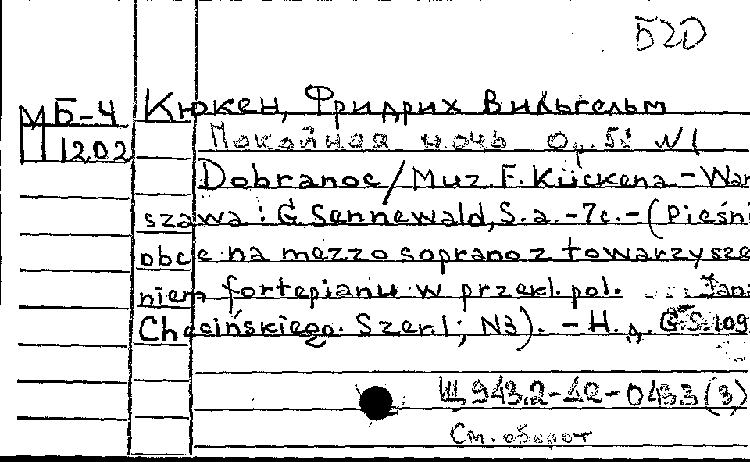 Б20
М Б-4 Кюкен, Фридрих Вильгельм
П 1202 Покойная ночь Op. 52 N 1
Dobranoc/Muz. F. Kückena - War
szawa: G. Sennewald, S. a. - 7с. - (Pieśni
obce na mezzo soprano z towarzysze
niem fortepianu w przekl. pol. Jana
Checińskiego. Szer. 1; N3). - Н. д. G.S. 109
Щ 943.2-42-0433 (3)
См. оборот